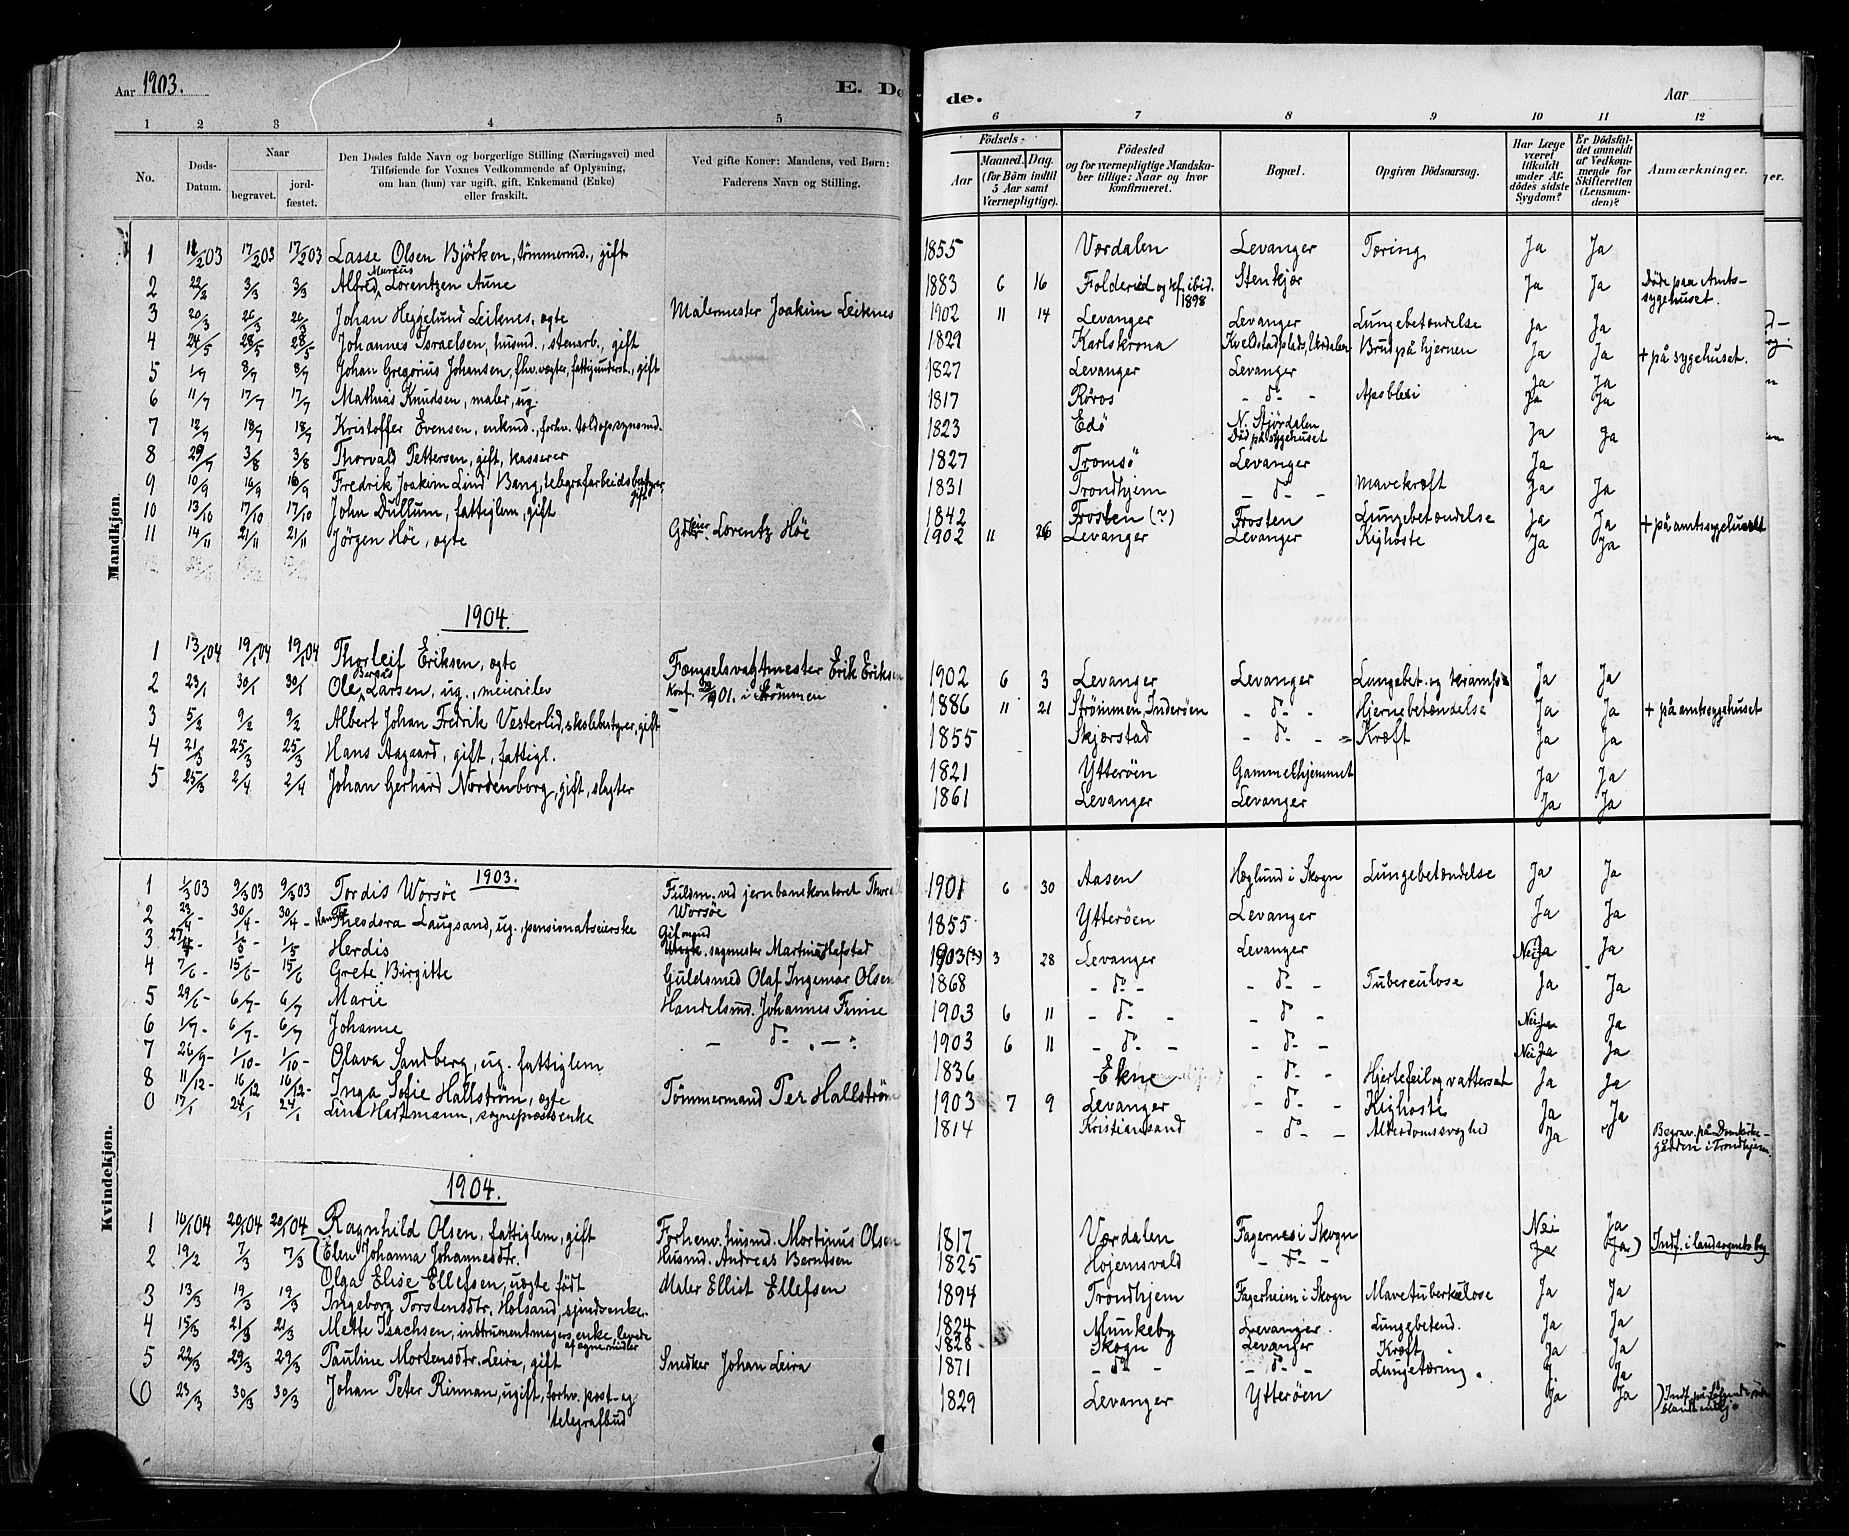 Aar 1903.
E. Dø
de.
Aar
1 2 3 4 5 6 7 8 9 10 11 12
No.
Døds-Datum.
Naar
begravet.
jord-fæstet.
Den Dødes fulde Navn og borgerlige Stilling (Næringsvei) med
Tilføiende for Voxnes Vedkommende af Oplysning,
om han (hun) var ugift, gift, Enkemand (Enke)
eller fraskilt.
Ved gifte Koner: Mandens, ved Børn:
Faderens Navn og Stilling.
Fødsels-
Aar
Maaned. Dag.
(for Børn indtil
5 Aar samt
Værnepligtige).
Fødested
og for værnepligtige Mandska-
ber tillige: Naar og hvor
konfirmeret.
Bopæl.
Opgiven Dødsaarsag.
Har Læge
været
tilkaldt
under Af-
dødes sidste
Sygdom?
Er Dødsfal-
det anmeldt
af Vedkom-
mende for
Skifteretten
(Lensman-
den)?
Anmærkninger.
Mandkjøn.
1 11/2 03 17/2 03 17/2 03 Lasse Olsen Björken, tömmermd., gift 1855 Værdalen Levanger Tæring Ja Ja
2 22/2 3/3 3/3 Alfred Marcus Lorentzen Aune 1883 6 16 Foldereid og kf. ibid. 1898 Stenkjær Ja Ja Döde paa Amts-sygehuset.
3 20/3 26/3 26/3 Johan Heggelund Leiknes, ægte Malermester Joakim Leiknes 1902 11 14 Levanger Levanger Lungebetændelse Ja Ja
4 24/5 28/5 28/5 Johannes Israelsen, husmd., stenarb., gift 1829 Karlskrona Kvelstadplads, Værdalen Brud på hjernen Ja Ja + på sygehuset.
5 1/7 8/7 8/7 Johan Gregorius Johansen, fhv. vægter, fattigunderst., gift 1827 Levanger Levanger Ja Ja
6 11/7 17/7 17/7 Mathias Knudsen, maler, ug. 1817 Röros - d° - Apoblexi Ja Ja
7 12/7 18/7 18/7 Kristoffer Evensen, enkmd., forhv. toldopsynsmd. 1823 Edö N. Stjördalen Död på sygehuset Ja Ja
8 29/7 3/8 3/8 Thorvald Pettersen, gift, kasserer 1827 Tromsö Levanger Ja
9 10/9 16/9 16/9 Fredrik Joakim Lind Bang, telegrafarbeidsbestyrer, gift 1831 Trondhjem - d° - Mavekræft Ja Ja
10 13/10 17/10 17/10 John Dullum, fattiglem, gift 1842 Frosten (?) Frosten Lungebetændelse Ja Ja + på amtssygehuset
11 14/11 21/11 21/11 Jörgen Höe, ægte Gdeier Lorentz Höe 1902 11 26 Levanger Levanger Kighoste Ja Ja
1904.
1 13/1 04 19/1 04 19/1 04 Thorleif Eriksen, ægte Fængselsvagtmester Erik Eriksen 1902 6 3 Levanger Levanger Lungebet. og Ja Ja
2 23/1 30/1 30/1 Ole Larsen, ug., meierielev Konf. 1901. i Strømmen 1886 11 21 Strömmen, Inderöen - d° - Hjernebetændelse Ja Ja + på amtssygehuset
3 5/2 9/2 9/2 Albert Johan Fredrik Vesterlid, skolebestyrer, gift - 1855 Skjerstad - d° - Kræft Ja Ja
4 21/3 25/3 25/3 Hans Aagaard, gift, fattigl. 1821 Ytteröen Gammelhjemmet Ja Ja
5 25/3 2/4 2/4 Johan Gerhard Nordenborg, gift, slagter 1861 Levanger Levanger Ja Ja
Kvindekjøn.
1903.
1 1/3 03 9/3 03 9/3 03 Tordis Worsöe Fuldm. ved jernbanekontoret Worsöe 1901 6 30 Aasen Høglund i Skogn Lungebetændelse Ja Ja
2 23/4 - 30/4 - 30/4 - Theodora Laugsand, ug., pensionatseierske 1855 Ytteröen Levanger Ja Ja
3 27/4 - 1/5 - 1/5 Herdis sagmester Martinus Hafstad 1903 (?) 3 28 Levanger Levanger Nei Ja Ja
4 7/6 - 15/6 - 15/6 Grete Birgitte Guldsmed Olaf Ingemar Olsen 1868 - d° - - d° - Tuberculose Ja Ja
5 29/6 - 6/7 - 6/7 Marie Handelsmd. Johannes Finne 1903 6 11 - d° - - d° - Nei Ja Ja
6 1/7 - 6/7 - 6/7 Johanne - d° - 1903 6 11 - d° - - d° - Nei Ja Ja
7 26/9 - 1/10 - 1/10 - Olava Sandberg, ug. fattiglem 1836 Ekne - d° - Hjertefeil og vattersot Ja Ja
8 11/12 - 16/12 16/12 - Inga Sofie Hallström, ægte Tömmermand Per Hallström 1903 7 9 Levanger - d° - Kighoste Ja Ja
0 17/1 24/1 24/1 Lina Hartmann, sognepræstsenke 1814 Kristiansand - d° - Alderdomssvaghed Ja Begrav. på Domkirke-gården i Trondhjem.
1904.
1 16/1 04 20/1 04 20/1 04 Ragnhild Olsen, fattiglem, gift Forhenv. husmd. Martinus Olsen 1817 Værdalen Fagernes i Skogn Nei Ja
2 19/2 7/3 7/3 (Elen Johanna Johannesdtr. Husmd. Andreas Berntsen 1825 Hojemsvald - d° - Ja Ja) Indf. i landsognets bog
Olga Elise Ellefsen, uægte född Maler Ellist Ellefsen 1894 Trondhjem Fagerheim i Skogn Mavetuberkulose Ja Ja
3 13/3 19/3 19/3 Ingeborg Torstensdtr. Holsand, enke. 1824 Munkeby Levanger. Lungebetend. Ja Ja
4 15/3 21/3 21/3 Mette Isachsen, instrumentmagers enke, levede af egne midler 1828 Skogn Levanger Kræft Ja Ja
5 22/3 29/3 29/3 Pauline Mortensdtr. Leira, gift Snedker Johan Leira 1871 - d° - - d° - Lungetæring. Ja Ja
0 23/3 30/3 30/3 Johan Peter Rinnan, ugift, forhv. post- og telegrafbud 1829 Levanger Ytteröen Ja Ja ) Indf. på